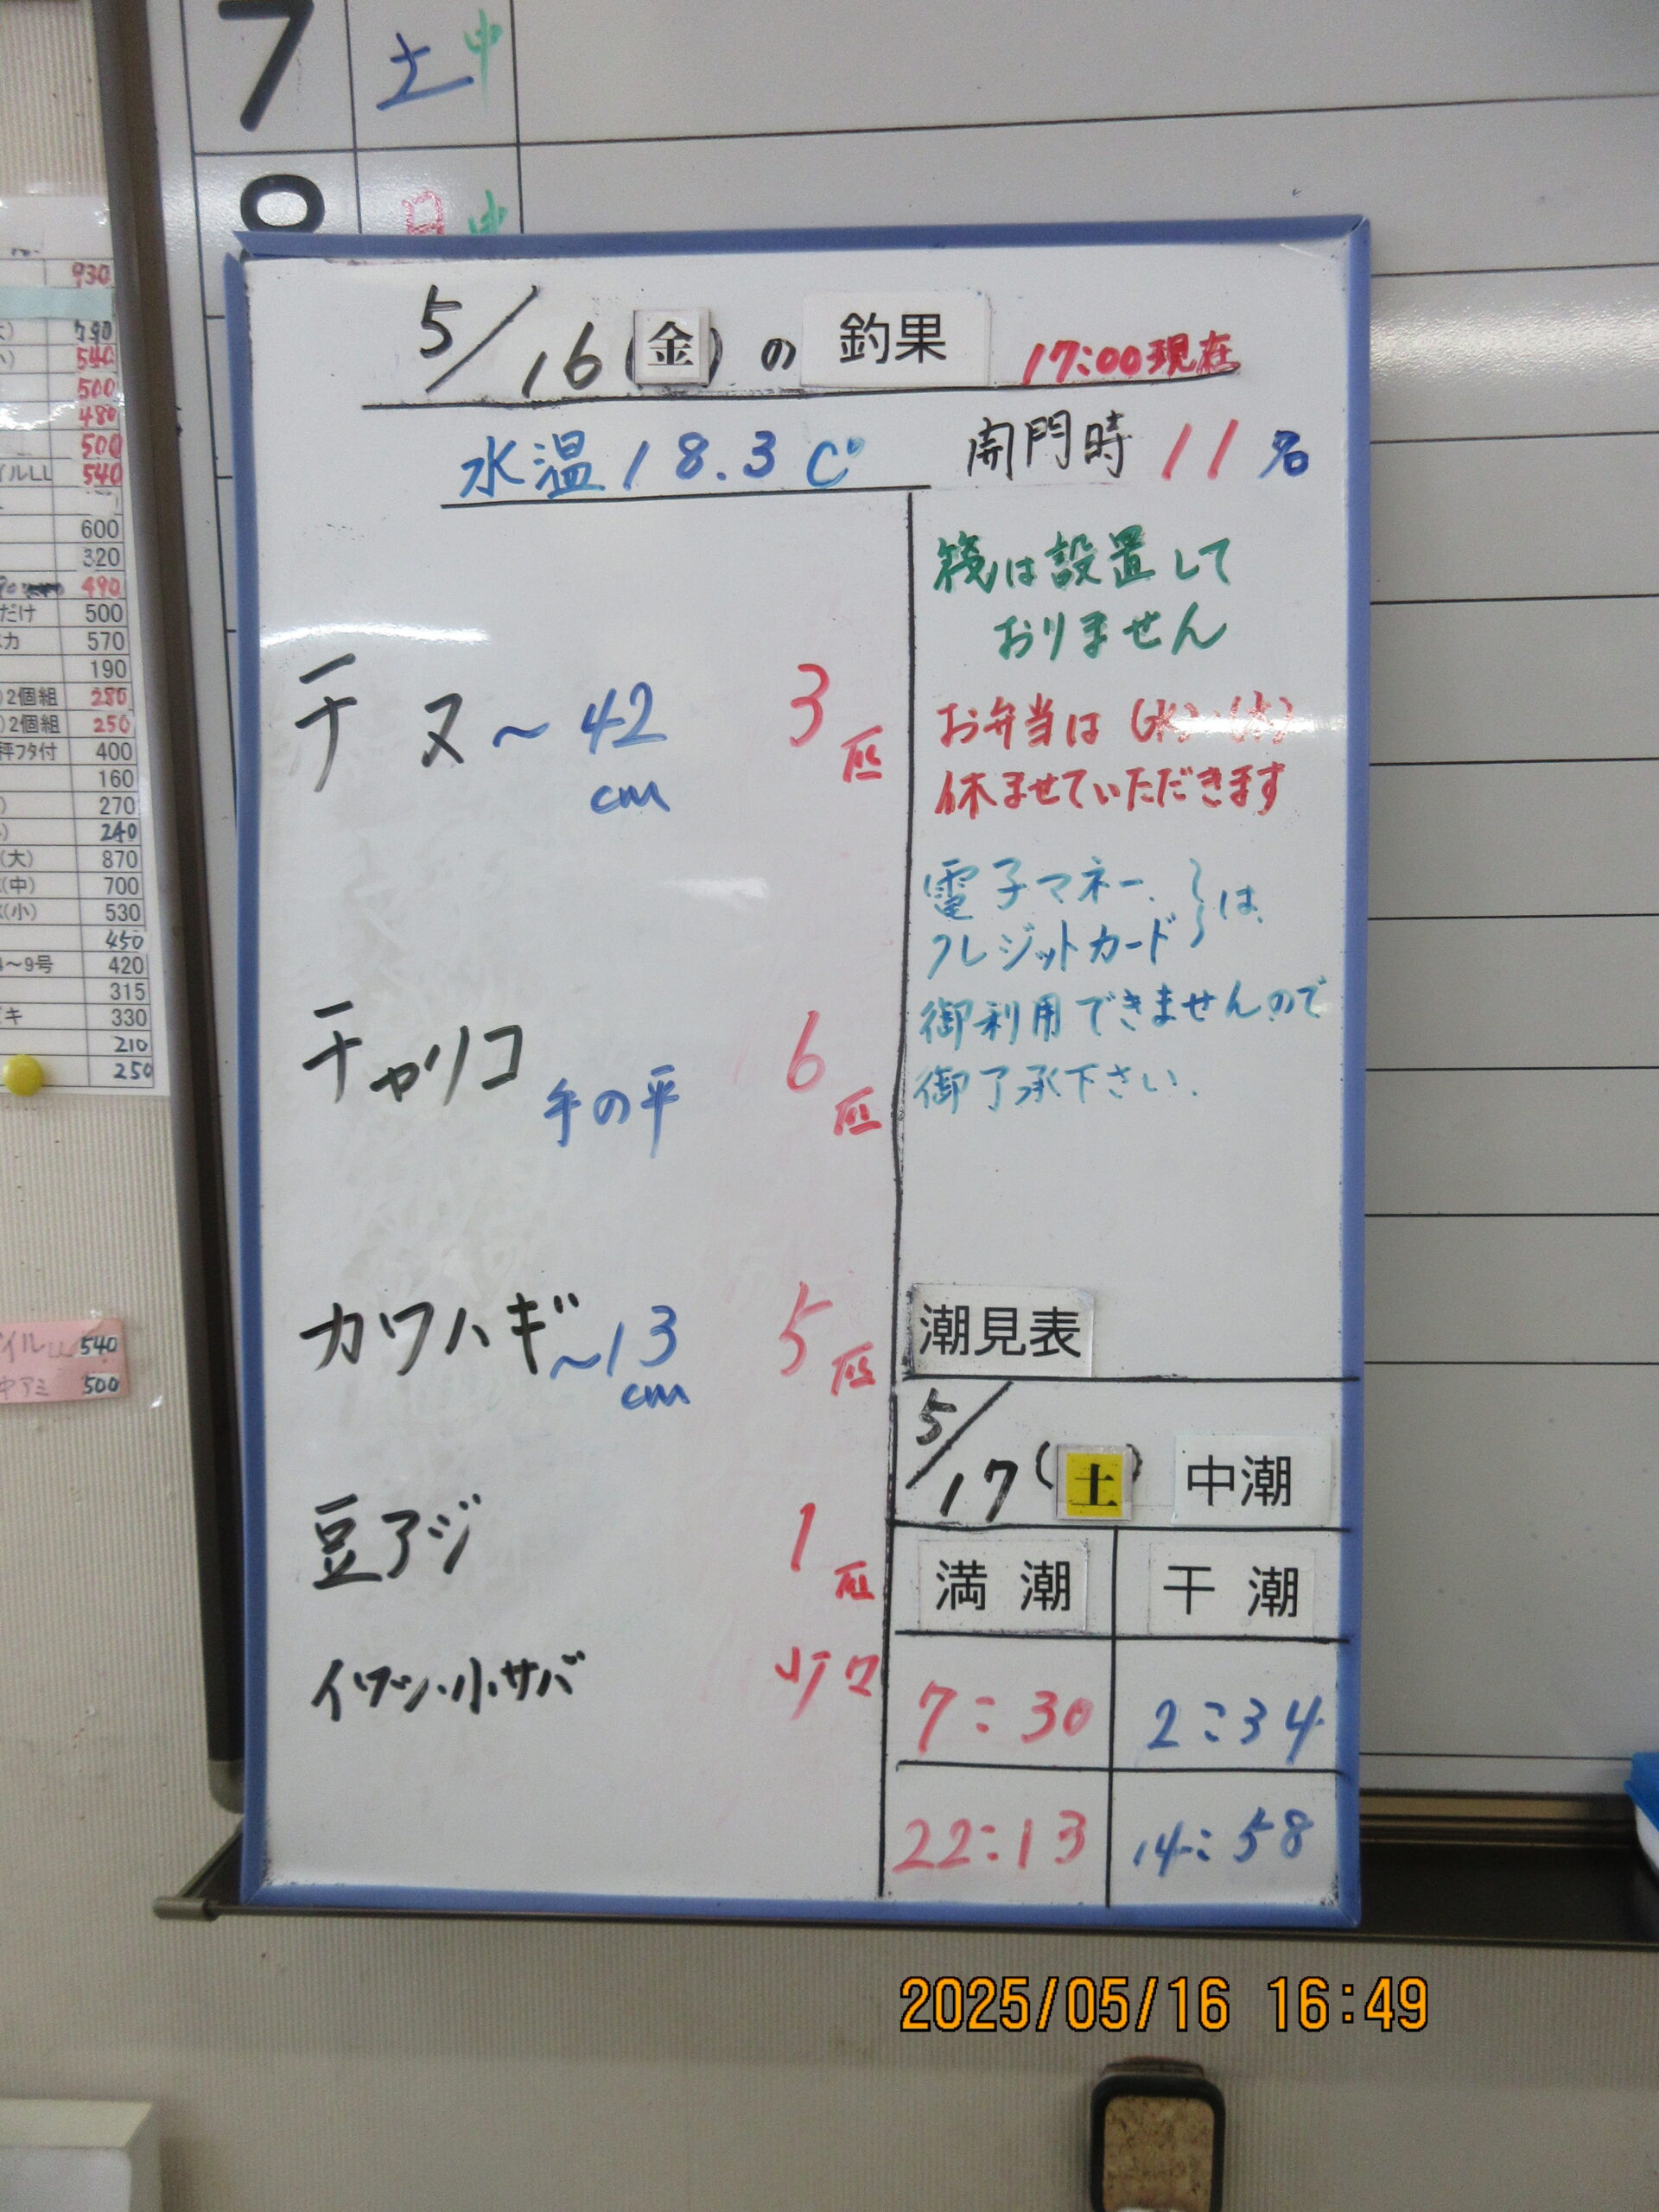 7 土 中
8 日 中
5/16(金)の釣果 17:00現在
水温 18.3 C°
開門時 11名
チヌ ~42cm 3匹
チャリコ 手の平 6匹
カワハギ ~13cm 5匹
豆アジ 1匹
イワシ・小サバ 少々
筏は設置して
おりません
お弁当は(水)・(木)
休ませていただきます
電子マネー、
クレジットカード}は
御利用できませんので
御了承下さい.
潮見表
5/17(土) 中潮
満潮 干潮
7:30 2:34
22:13 14:58
930
790
540
500
480
500
イルLL 540
600
320
490
だけ 500
570
190
2個組 280
2個組 250
秤フタ付 400
160
270
240
(大) 870
(中) 700
(小) 530
450
4~9号 420
315
キ 330
210
250
イルLL 540
中アミ 500
2025/05/16 16:49